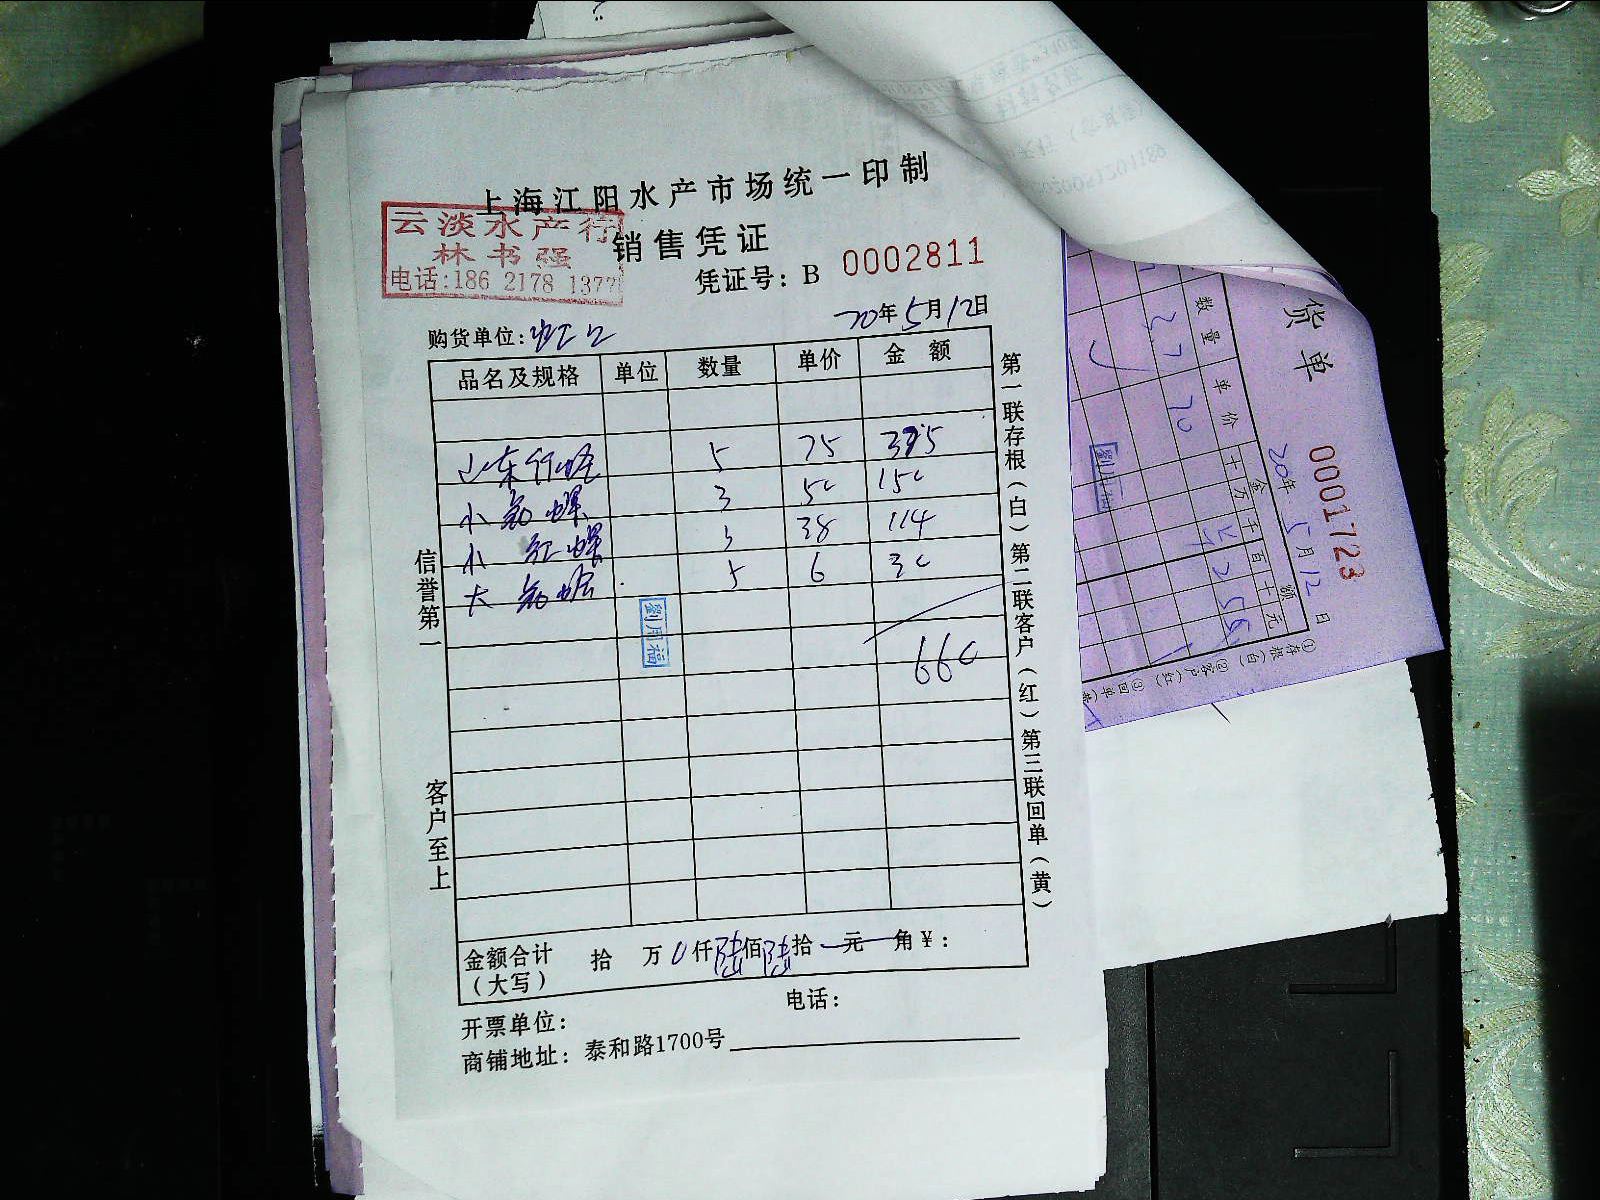 上海江阳水产市场统一印制
云淡水产行
林书强
电话:186 2178 1377
销售凭证
凭证号: B 0002811
购货单位: 虹口 20年5月12日
品名及规格 单位 数量 单价 金额
山东竹蛏 5 75 375
小 螺 3 50 150
小 红螺 3 38 114
大 蛤 5 6 30
劉用福
660
信誉第一
客户至上
第一联存根(白) 第二联客户(红) 第三联回单(黄)
金额合计 拾 万 0仟陆佰陆拾 元 角¥:
(大写)
电话:
开票单位:
商铺地址: 泰和路1700号
货单
0001723
20年 5月12日
数量 单价 金额
千 万 千 百 十 元
27 20
劉用福
①存根(白) ②客户(红) ③回单